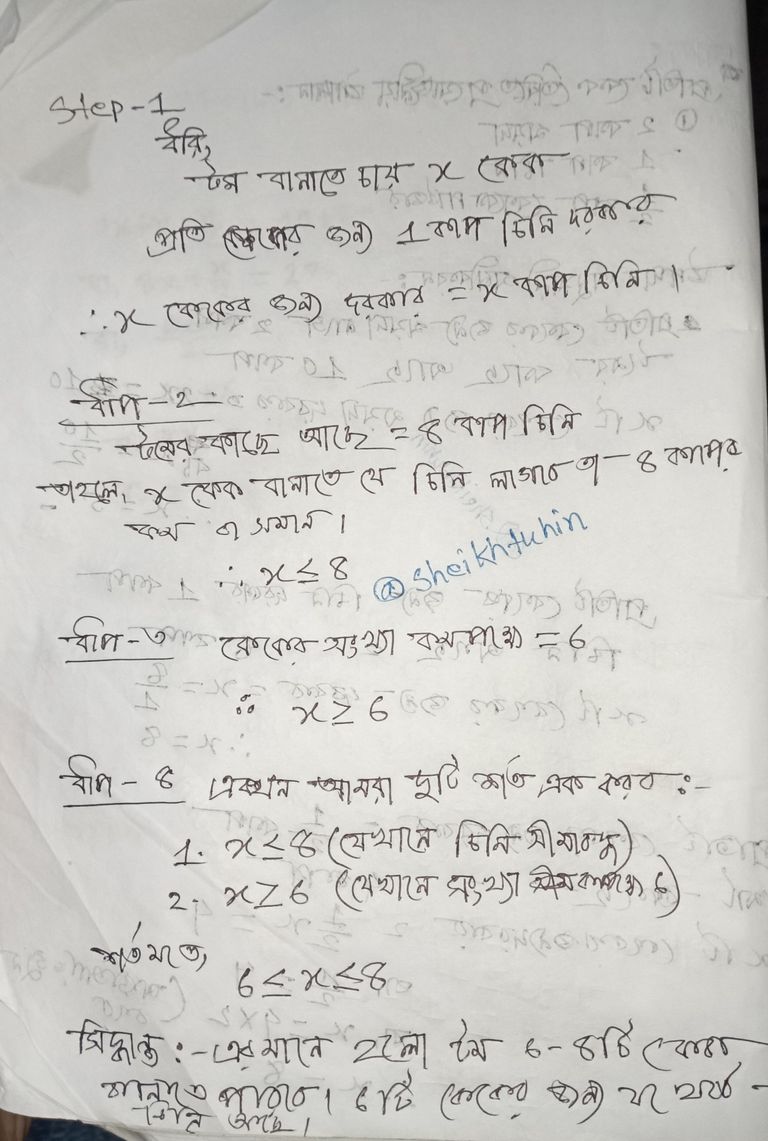 Step-1
ধরি,
টম বানাতে চায় x কেক
প্রতি কেকের জন্য 1 কাপ চিনি দরকার
∴ x কেকের জন্য দরকার = x কাপ চিনি।
ধাপ-২
টমের কাছে আছে = 8 কাপ চিনি
তাহলে, x কেক বানাতে যে চিনি লাগবে তা 8 কাপের
কম বা সমান।
∴ x ≤ 8
@sheikhtuhin
ধাপ-৩ কেকের সংখ্যা কমপক্ষে = 6
∴ x ≥ 6
ধাপ-৪ এখন আমরা দুটি শর্ত এক করব :-
1. x ≤ 8 (যেখানে চিনি সীমাবদ্ধ)
2. x ≥ 6 (যেখানে সংখ্যা কমপক্ষে 6)
শর্তমতে,
6 ≤ x ≤ 8
সিদ্ধান্ত :- এর মানে হলো টম 6-8টি কেক
বানাতে পারবে। 6টি কেকের জন্য
চিনি আছে।